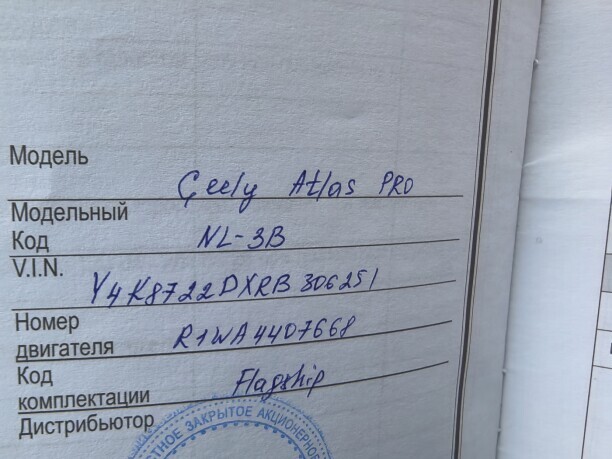 Модель Geely Atlas PRO
Модельный
Код NL-3B
V.I.N. Y4K8722DXRB306251
Номер
двигателя R1WA4407668
Код
комплектации Flagship
Дистрибьютор
ЗАКРЫТОЕ АКЦИОНЕРНО